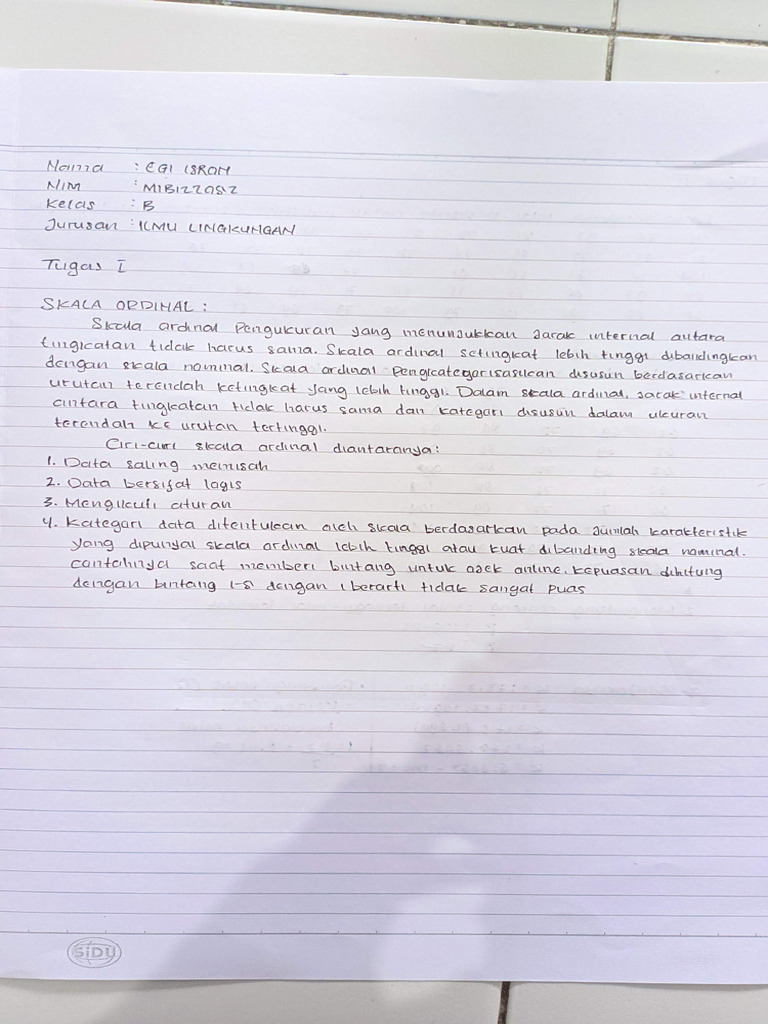 Nama : EGI ISROM
NIM : M1B122052
Kelas : B
Jurusan : ILMU LINGKUNGAN
Tugas I
SKALA ORDINAL :
Skala ordinal Pengukuran yang menunjukkan Jarak internal antara
tingkatan tidak harus sama. Skala ordinal setingkat lebih tinggi dibandingkan
dengan skala nominal. Skala ordinal Pengkategorisasikan disusun berdasarkan
urutan terendah ketingkat yang lebih tinggi. Dalam skala ordinal, Jarak internal
antara tingkatan tidak harus sama dan kategori disusun dalam ukuran
terendah ke urutan tertinggi.
Ciri-ciri skala ordinal diantaranya :
1. Data saling memisah
2. Data bersifat logis
3. Mengikuti aturan
4. Kategori data ditentukan oleh skala berdasarkan pada Jumlah karakteristik
yang dipunyai skala ordinal lebih tinggi atau kuat dibanding skala nominal.
contohnya saat memberi bintang untuk ojek online. kepuasan dihitung
dengan bintang 1-5 dengan 1 berarti tidak sangat puas
SiDU